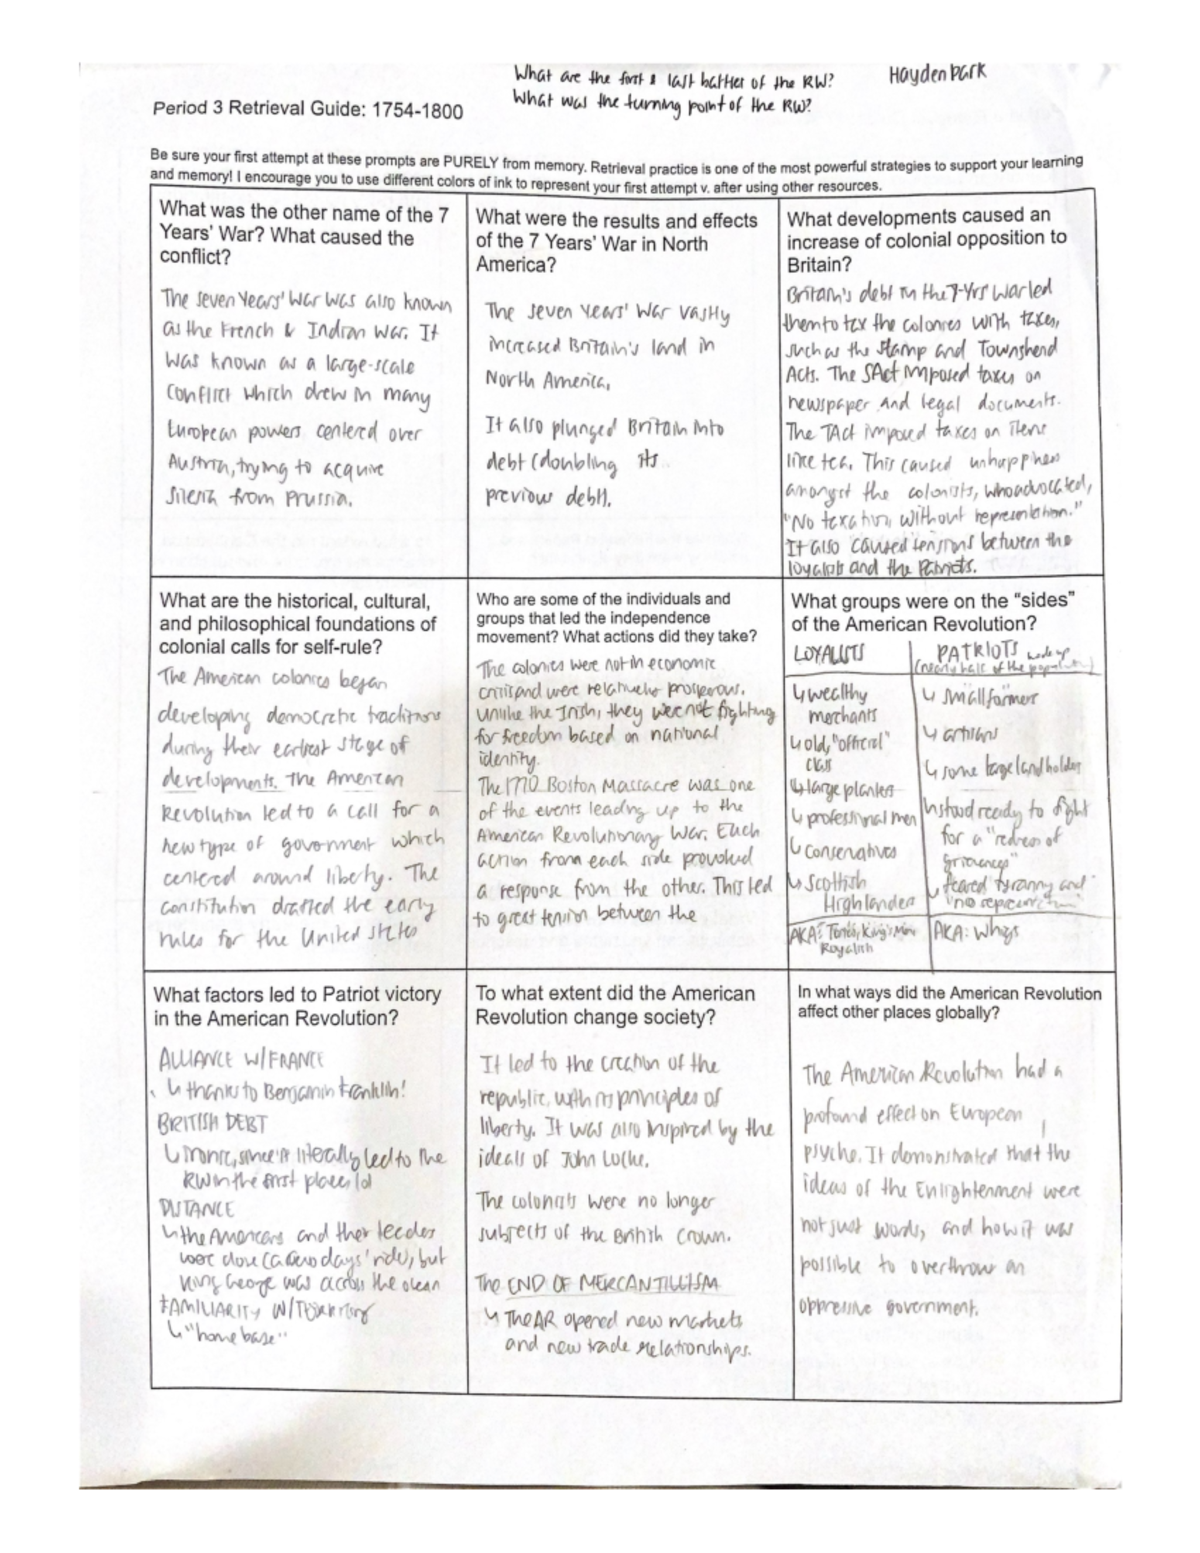 What are the first & last battles of the RW?
Hayden Park
What was the turning point of the RW?
Period 3 Retrieval Guide: 1754-1800
Be sure your first attempt at these prompts are PURELY from memory. Retrieval practice is one of the most powerful strategies to support your learning
and memory! I encourage you to use different colors of ink to represent your first attempt v. after using other resources.
What was the other name of the 7
Years' War? What caused the
conflict?
The Seven Years' War was also known
as the French & Indian War. It
was known as a large-scale
conflict which drew in many
European powers centered over
Austria, trying to acquire
Silesia from Prussia.
What were the results and effects
of the 7 Years' War in North
America?
The Seven Years' War vastly
increased Britain's land in
North America.
It also plunged Britain into
debt (doubling its
previous debt).
What developments caused an
increase of colonial opposition to
Britain?
Britain's debt in the 7-Yrs' War led
them to tax the colonies with taxes,
such as the Stamp and Townshend
Acts. The SAct imposed taxes on
newspaper and legal documents.
The TAct imposed taxes on items
like tea. This caused unhappiness
amongst the colonists, who advocated,
"No taxation, without representation."
It also caused tensions between the
loyalists and the Patriots.
What are the historical, cultural,
and philosophical foundations of
colonial calls for self-rule?
The American colonies began
developing democratic traditions
during their earliest stage of
developments. The American
Revolution led to a call for a
new type of government which
centered around liberty. The
constitution drafted the early
rules for the United States
Who are some of the individuals and
groups that led the independence
movement? What actions did they take?
The colonies were not in economic
crisis and were relatively prosperous.
Unlike the Irish, they were not fighting
for freedom based on national
identity.
The 1770 Boston Massacre was one
of the events leading up to the
American Revolutionary War. Each
action from each side provoked
a response from the other. This led
to great tension between the
What groups were on the “sides”
of the American Revolution?
LOYALISTS
↳ wealthy
merchants
↳ old, "official"
class
↳ large planters
↳ professional men
↳ conservatives
↳ Scottish
Highlanders
AKA: Tories, King's Men
Royalists
PATRIOTS made up
(nearly half of the population)
↳ small farmers
↳ artisans
↳ some large landholders
↳ stood ready to fight
for a "redress of
grievances"
↳ feared tyranny and
"no representation"
AKA: Whigs
What factors led to Patriot victory
in the American Revolution?
ALLIANCE W/ FRANCE
↳ thanks to Benjamin Franklin!
BRITISH DEBT
↳ ironic, since it literally led to the
RW in the first place lol
DISTANCE
↳ the Americans and their leaders
were close (a few days' ride), but
King George was across the ocean
FAMILIARITY W/ TERRITORY
↳ "home base"
To what extent did the American
Revolution change society?
It led to the creation of the
republic, with its principles of
liberty. It was also inspired by the
ideals of John Locke.
The colonists were no longer
subjects of the British Crown.
The END OF MERCANTILLISM
↳ The AR opened new markets
and new trade relationships.
In what ways did the American Revolution
affect other places globally?
The American Revolution had a
profound effect on European
psyche. It demonstrated that the
ideas of the Enlightenment were
not just words, and how it was
possible to overthrow an
oppressive government.